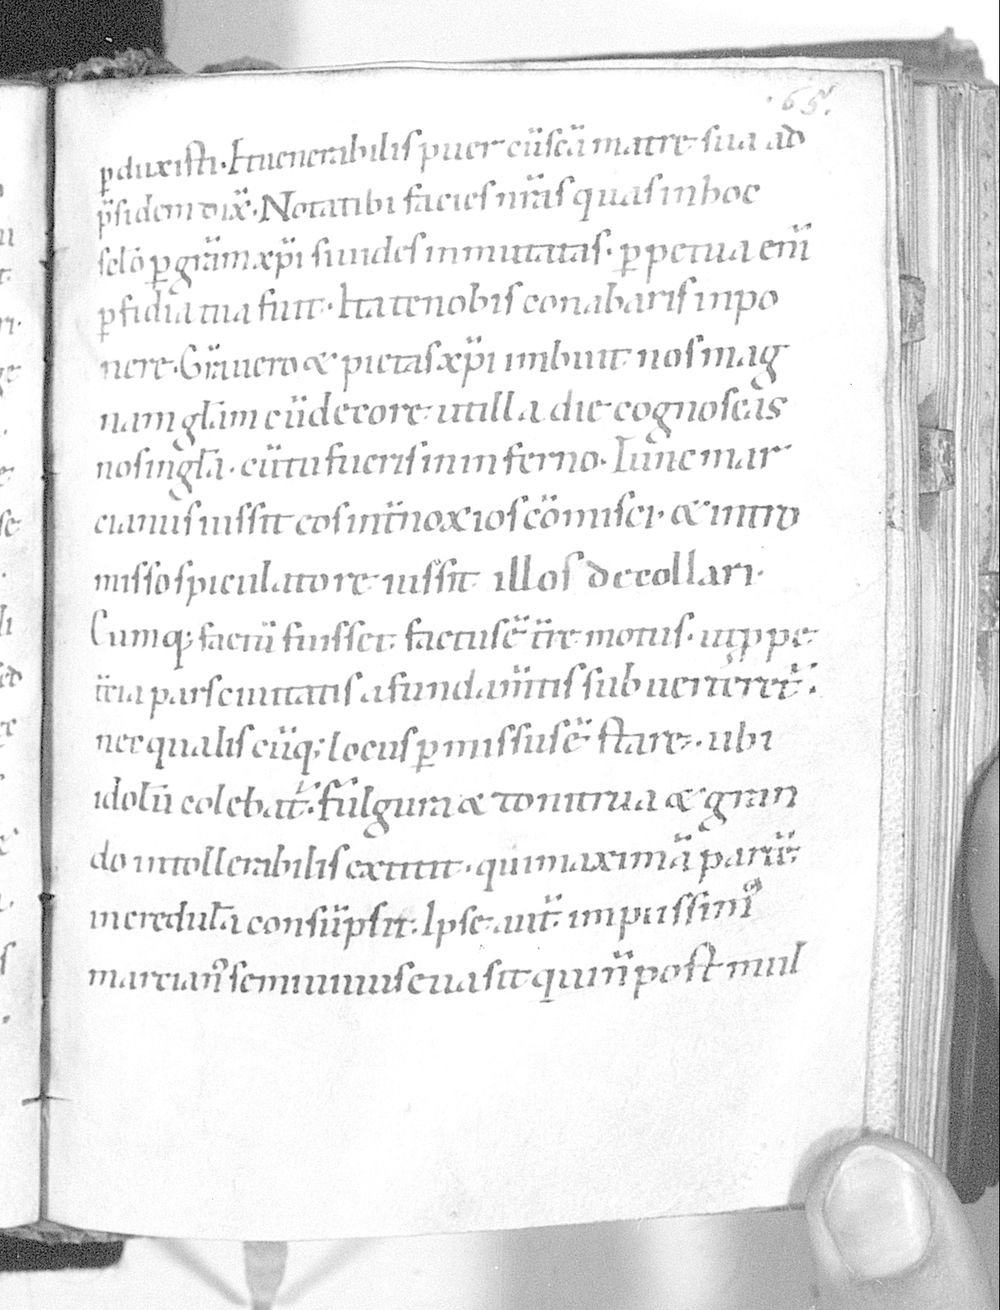 ·65·
ꝑduxisti· Et uenerabilis puer cū scā matre sua ad
p̄sidem dix̄· Nota tibi facies nr̄as quas in hoc
sclō ꝑ grām xp̄i sui uides inmutatas· ꝑpetua eni̅
ꝑfidia tua fuit· Ita te nobis conabaris inpo
nere· Grā uero & pietas xp̄i imbuit nos mag
nam glam cū decore· ut illa die cognoscas
nos in gla· cū tu fueris in inferno· Tunc mar
cianus iussit eos int̄ noxios cōmisci· & intro
misso spiculatore iussit illos decollari·
Cumq; factū fuisset· factus ē t̄re motus· ut ꝑpe
tcia pars ciuitatis a fundam̄tis subuerteret̄·
nec qualiscūq; locus ꝑmissus ē stare· ubi
idolū colebat̄· fulgura & tonitrua & gran
do intollerabilis extitit· qui maximā partē
incredula consūpsit· Ipse aut̄ impiissim᾿
marcian᾿ semiuiuus euasit qui n̄ post mul